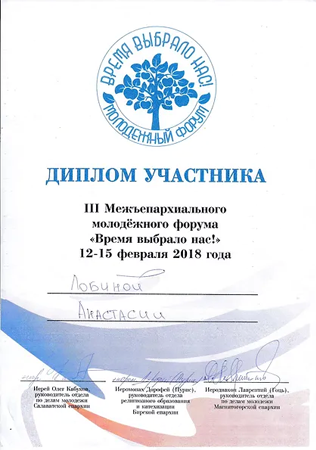 ВРЕМЯ ВЫБРАЛО НАС!
МОЛОДЕЖНЫЙ ФОРУМ
ДИПЛОМ УЧАСТНИКА
III Межъепархиального
молодёжного форума
«Время выбрало нас!»
12-15 февраля 2018 года
Лобиной
Анастасии
Иерей Олег Кабуков,
руководитель отдела
по делам молодежи
Салаватской епархии
Иеромонах Дорофей
руководитель отдела
религиозного образования
и катехизации
Бирской епархии
Иеродиакон Лаврентий
руководитель отдела
по делам молодежи
Магнитогорской епархии